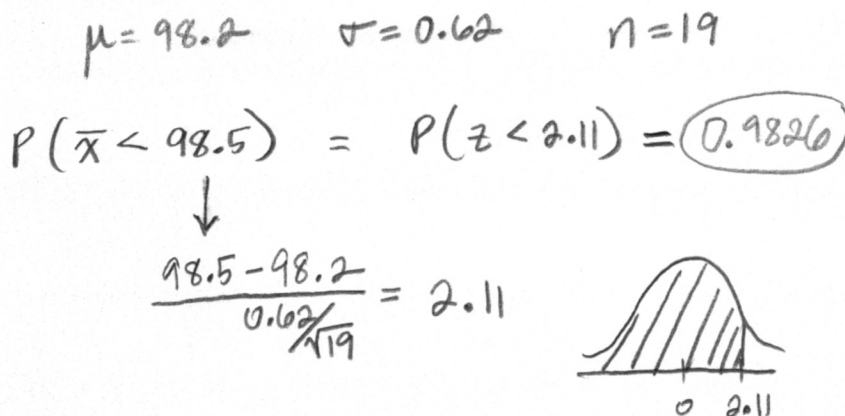 μ = 98.2 σ = 0.62 n = 19
P(x̄ < 98.5) = P(z < 2.11) = 0.9826
↓
98.5 - 98.2 / 0.62/√19 = 2.11
0 2.11